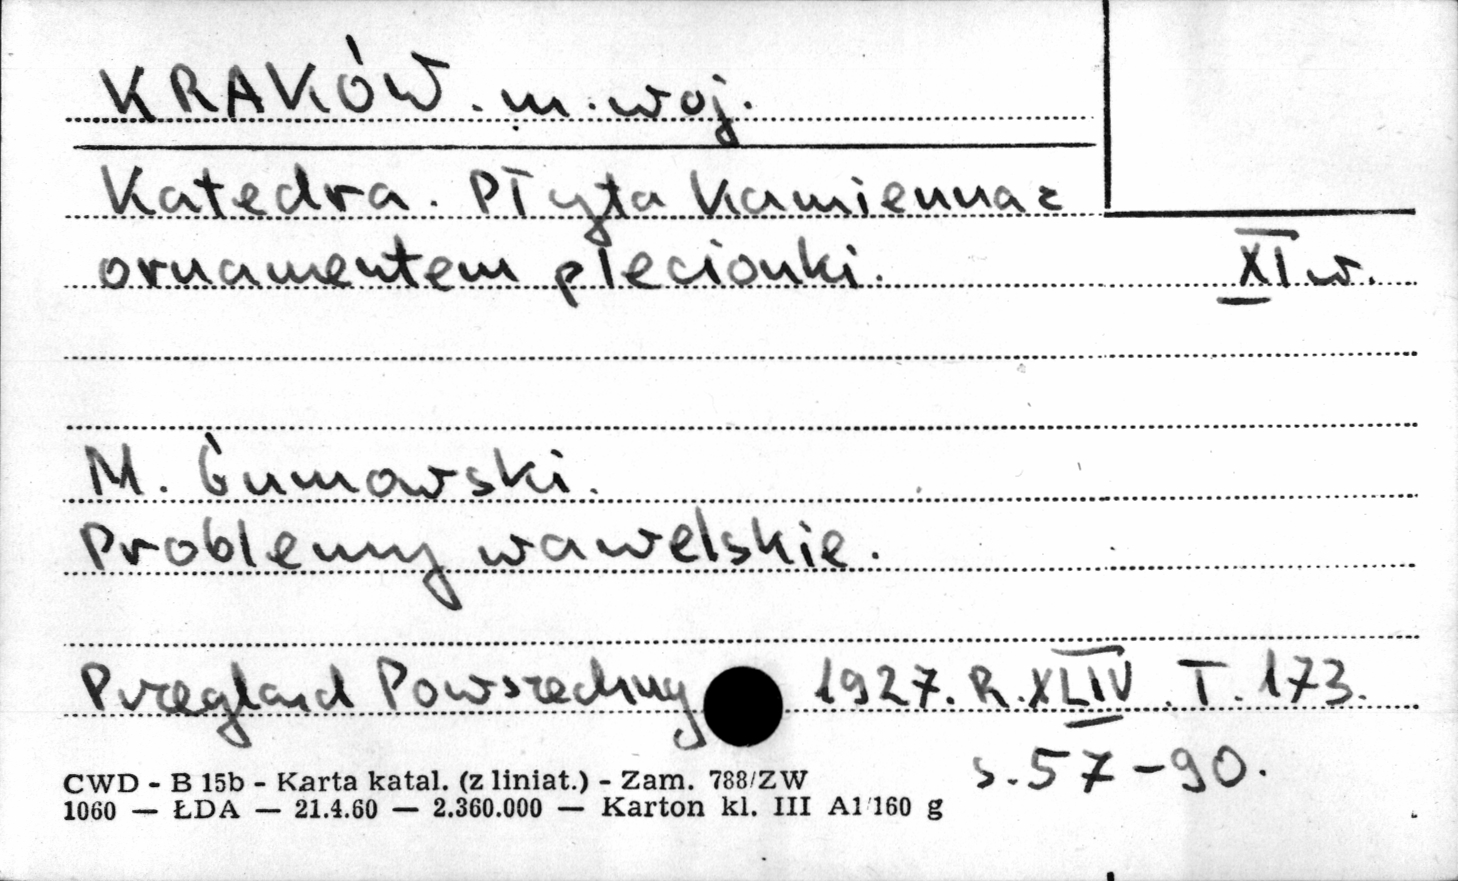 KRAKÓW. m. woj.
Katedra. Płyta kamienna z
ornamentem plecionki. XI w.
M. Gumowski.
Problemy wawelskie.
Przegląd Powszechny 1927. R. XLIV. T. 173.
s. 57-90.
CWD - B 15b - Karta katal. (z liniat.) - Zam. 788/ZW
1060 — ŁDA — 21.4.60 — 2.360.000 — Karton kl. III A1/160 g